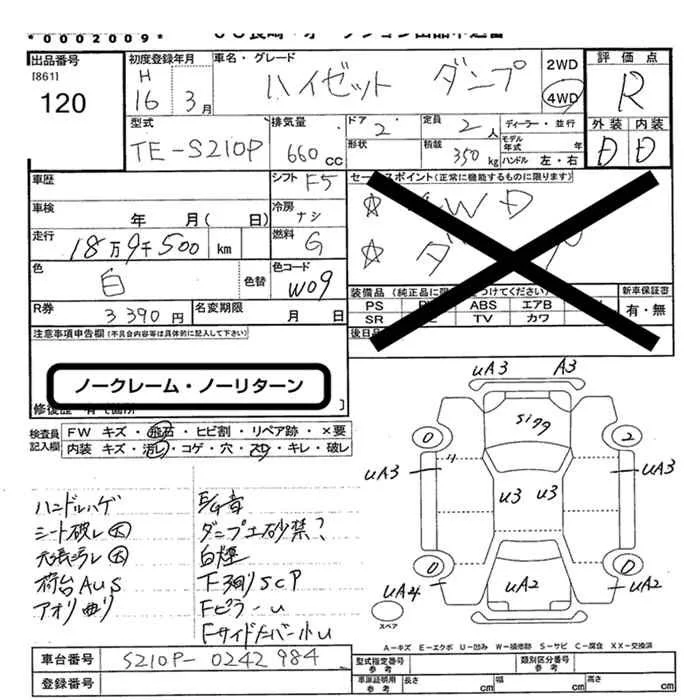 *0002009*
出品番号
[861]
120
初度登録年月
H
16 3月
車名・グレード
ハイゼット ダンプ
2WD
4WD
評価点
R
外装 内装
D D
型式
TE-S210P
排気量
660 cc
ドア
2
形状
定員
2人
積載
350 kg
ディーラー・並行
モデル年式 年
ハンドル 左・右
車歴
シフト F5
車検
年 月( 日)
冷房
ナシ
走行
18万9千500 km
燃料
G
色
白
色替
色コード
W09
R券
3390円
名変期限
月 日
セー スポイント(正常に機能するものに限ります)
☆ WD
☆
装備品(純正品に つけてください)
新車保証書
PS
ABS エアB
有・無
SR
TV カワ
後日
注意事項申告欄(不具合内容等は具体的に記入して下さい)
ノークレーム・ノーリターン
検査員記入欄
FW キズ・飛石・ヒビ割・リペア跡・×要
内装 キズ・汚レ・コゲ・穴・スレ・キレ・破レ
ハンドルハゲ
シート破レ大
天張汚レ大
荷台AUS
アオリ曲り
異音
ダンプ土砂禁?
白煙
下廻りSCP
Fピラーu
FサイドメンバーホU
uA3 A3
Sing
0 2
uA3 uA3
u3 u3
0 0
uA4 uA2 uA2
スペア
A-キズ E-エクボ U-凹み W-補修跡 S-サビ C-腐食 XX-交換済
車台番号
S210P-0242984
登録番号
型式指定番号
参考
類別区分番号
参考
車庫証明用
参考
長さ cm
幅 cm
高さ cm